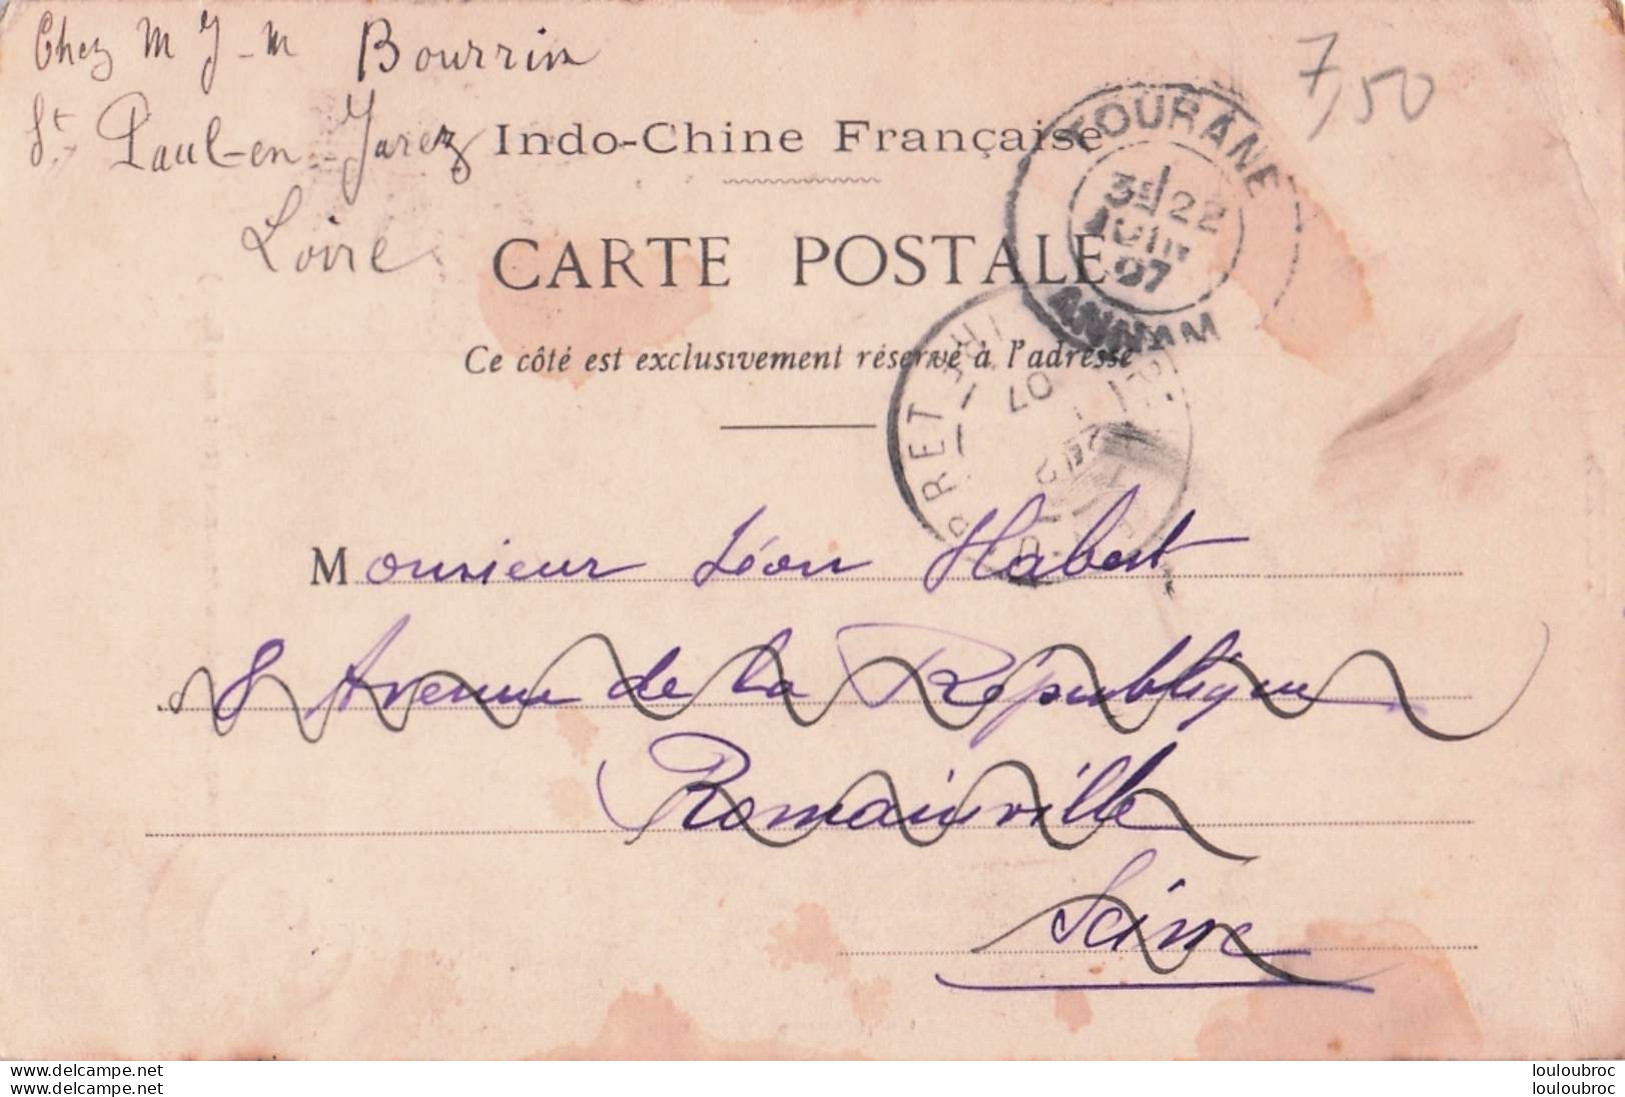 Chez M J-M Bourrin
St Paul-en-Jarez
Loire
7,50
Indo-Chine Française
CARTE POSTALE
Ce côté est exclusivement réservé à l'adresse
TOURANE
3E 22
JUIN
07
ANNAM
PRET
07
Monsieur Léon Habert
8 Avenue de la République
Romainville
Seine
delcampe.net
delcampe.net
louloubroc
louloubroc